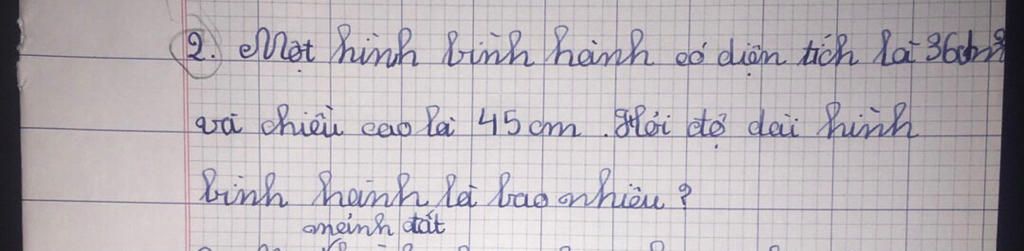 2. Một hình bình hành có diện tích là 36dm²
và chiều cao là 45cm. Hỏi độ dài hình
bình hành là bao nhiêu?
mảnh đất